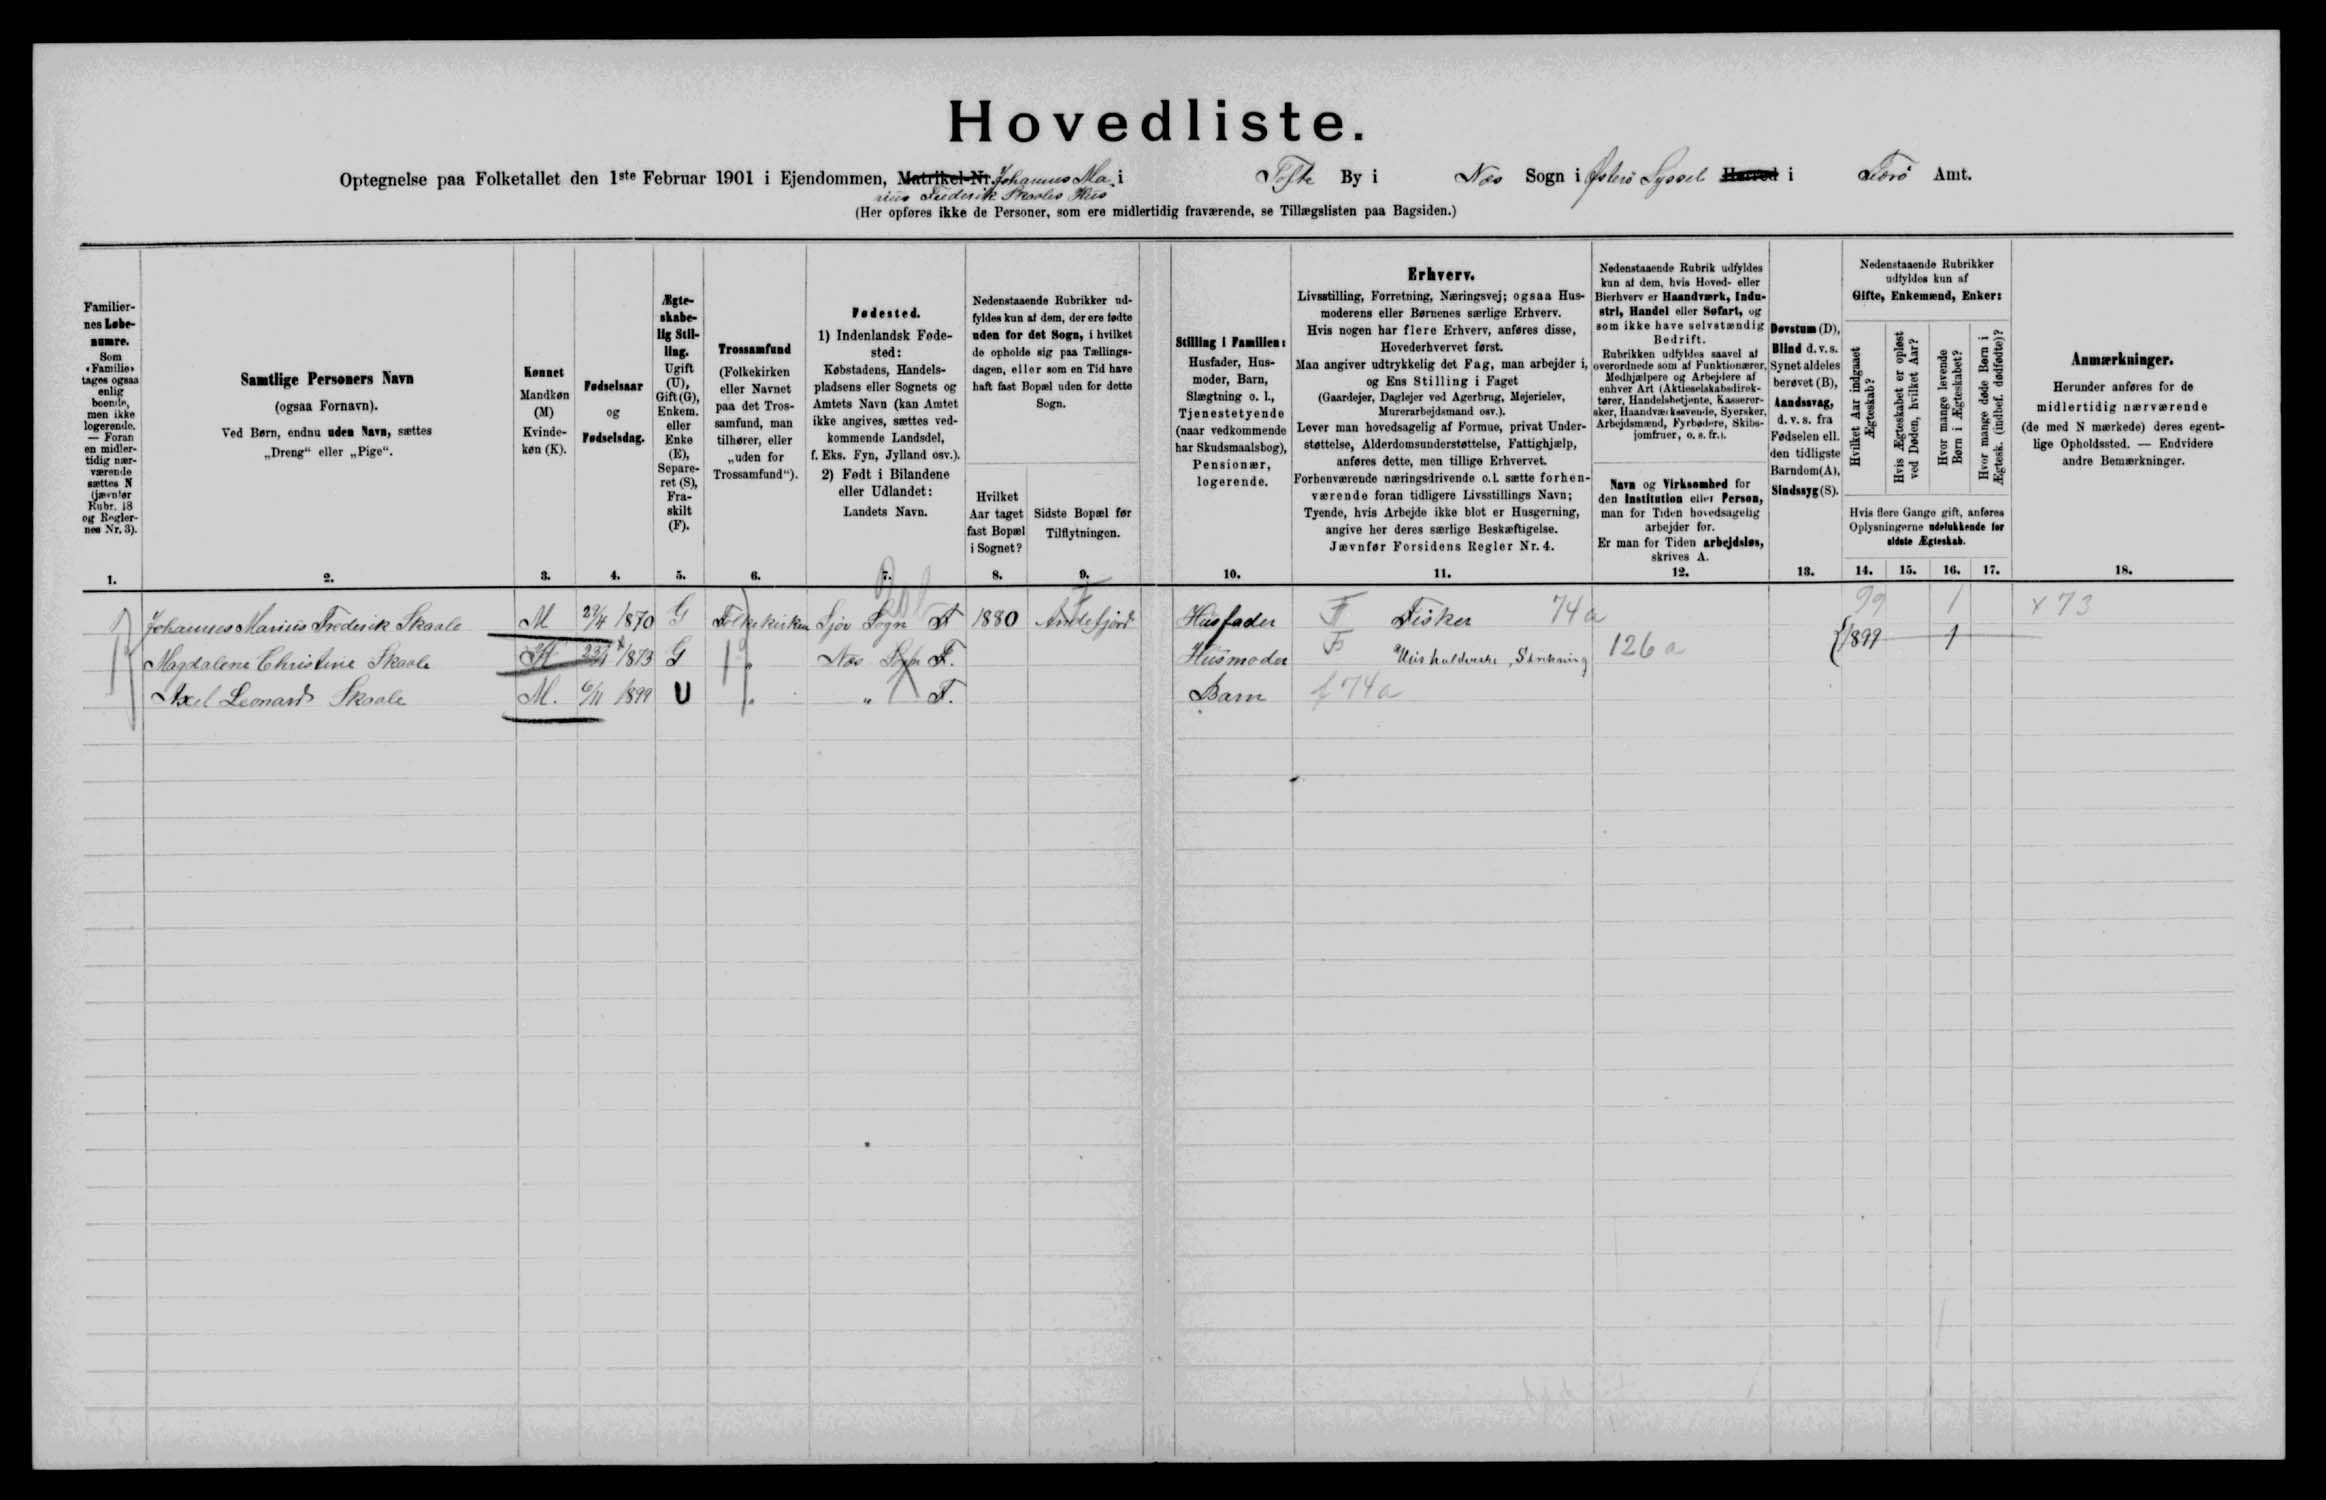 Hovedliste.
Optegnelse paa Folketallet den 1ste Februar 1901 i Ejendommen, Matrikel-Nr. Johannes Ma- i Tofte By i Næs Sogn i Østerø Syssel Herred i Færø Amt.
rius Frederik Skaales Hus
(Her opføres ikke de Personer, som ere midlertidig fraværende, se Tillægslisten paa Bagsiden.)
Familier-
nes Løbe-
numre.
Som
«Familie»
tages ogsaa
enlig
boende,
men ikke
logerende.
— Foran
en midler-
tidig nær-
værende
sættes N
(jævnfør
Rubr. 18
og Regler-
nes Nr. 3).
1.
Samtlige Personers Navn
(ogsaa Fornavn).
Ved Børn, endnu uden Navn, sættes
„Dreng“ eller „Pige“.
2.
Kønnet
Mandkøn
(M)
Kvinde-
køn (K).
3.
Fødselsaar
og
Fødselsdag.
4.
Ægte-
skabe-
lig Stil-
ling.
Ugift
(U),
Gift (G),
Enkem.
eller
Enke
(E),
Separe-
ret (S),
Fra-
skilt
(F).
5.
Trossamfund
(Folkekirken
eller Navnet
paa det Tros-
samfund, man
tilhører, eller
„uden for
Trossamfund“).
6.
Fødested.
1) Indenlandsk Føde-
sted:
Købstadens, Handels-
pladsens eller Sognets og
Amtets Navn (kan Amtet
ikke angives, sættes ved-
kommende Landsdel,
f. Eks. Fyn, Jylland osv.).
2) Født i Bilandene
eller Udlandet:
Landets Navn.
7.
Nedenstaaende Rubrikker ud-
fyldes kun af dem, der ere fødte
uden for det Sogn, i hvilket
de opholde sig paa Tællings-
dagen, eller som en Tid have
haft fast Bopæl uden for dette
Sogn.
Hvilket
Aar taget
fast Bopæl
i Sognet?
8.
Sidste Bopæl før
Tilflytningen.
9.
Stilling i Familien:
Husfader, Hus-
moder, Barn,
Slægtning o. l.,
Tjenestetyende
(naar vedkommende
har Skudsmaalsbog),
Pensionær,
logerende.
10.
Erhverv.
Livsstilling, Forretning, Næringsvej; ogsaa Hus-
moderens eller Børnenes særlige Erhverv.
Hvis nogen har flere Erhverv, anføres disse,
Hovederhvervet først.
Man angiver udtrykkelig det Fag, man arbejder i,
og Ens Stilling i Faget
(Gaardejer, Daglejer ved Agerbrug, Mejerielev,
Murerarbejdsmand osv.).
Lever man hovedsagelig af Formue, privat Under-
støttelse, Alderdomsunderstøttelse, Fattighjælp,
anføres dette, men tillige Erhvervet.
Forhenværende næringsdrivende o. l. sætte forhen-
værende foran tidligere Livsstillings Navn;
Tyende, hvis Arbejde ikke blot er Husgerning,
angive her deres særlige Beskæftigelse.
Jævnfør Forsidens Regler Nr. 4.
11.
Nedenstaaende Rubrik udfyldes
kun af dem, hvis Hoved- eller
Bierhverv er Haandværk, Indu-
stri, Handel eller Søfart, og
som ikke have selvstændig
Bedrift.
Rubrikken udfyldes saavel af
overordnede som af Funktionærer,
Medhjælpere og Arbejdere af
enhver Art (Aktieselskabsdirek-
tører, Handelsbetjente, Kasserer-
sker, Haandværkssvende, Syersker,
Arbejdsmænd, Fyrbødere, Skibs-
jomfruer, o. s. fr.).
Navn og Virksomhed for
den Institution eller Person,
man for Tiden hovedsagelig
arbejder for.
Er man for Tiden arbejdsløs,
skrives A.
12.
Døvstum (D),
Blind d. v. s.
Synet aldeles
berøvet (B),
Aandssvag,
d. v. s. fra
Fødselen ell.
den tidligste
Barndom (A),
Sindssyg (S).
13.
Nedenstaaende Rubrikker
udfyldes kun af
Gifte, Enkemænd, Enker:
Hvilket Aar indgaaet
Ægteskab?
Hvis Ægteskabet er opløst
ved Døden, hvilket Aar?
Hvor mange levende
Børn i Ægteskabet?
Hvor mange døde Børn i
Ægtesk. (indbef. dødfødte)?
Hvis flere Gange gift, anføres
Oplysningerne udelukkende for
sidste Ægteskab.
14. 15. 16. 17.
Anmærkninger.
Herunder anføres for de
midlertidig nærværende
(de med N mærkede) deres egent-
lige Opholdssted. — Endvidere
andre Bemærkninger.
18.
Johannes Marius Frederik Skaale M 29/4 1870 G Folkekirken Sjov Sogn F 1880 Andefjord Husfader F Fisker 74a 99 1 x 73
Magdalene Christine Skaale 1873 G " Næs Sogn F. Husmoder F Husholderske, Strikning 126a 1899 1
Axel Leonard Skaale M. 6/11 1899 U " " F. Barn f 74a